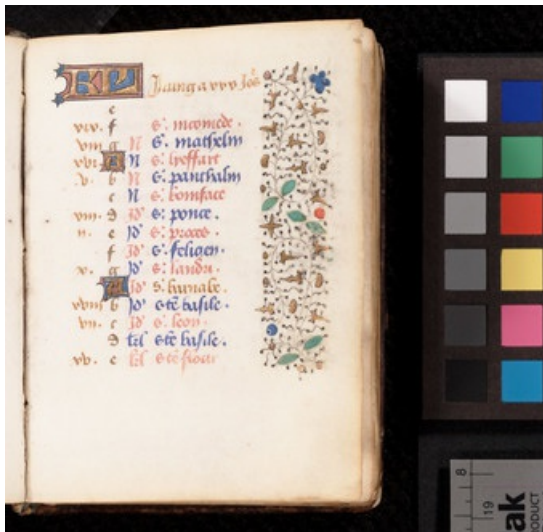 KL Juing a xxx Jo's
e
xiv. f s'. nicomede.
viii g N s'. mathelin
xvi. A N s'. lyeffart
v. b N s'. panthalin
c N s'. boniface
xiii. d Id' s'. ponce.
ii. e Id' s'. proces.
f Id' s'. felicien.
x. g Id' s'. landri.
A Id' s'. barnabe.
xviii b Id' s'te basile.
vii. c Id' s'. leon.
d kl s'te basile.
xv. e kl s'te flour
8
19
ak
PRODUCT